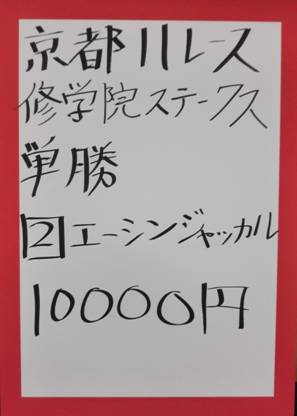 京都11レース
修学院ステークス
単勝
2エーシンジャッカル
10000円